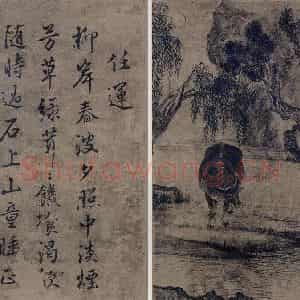 任運
柳岸春波夕照中淡煙
芳草綠茸饑飡渴飲
隨時過石上山童睡正
Shufawang.CN